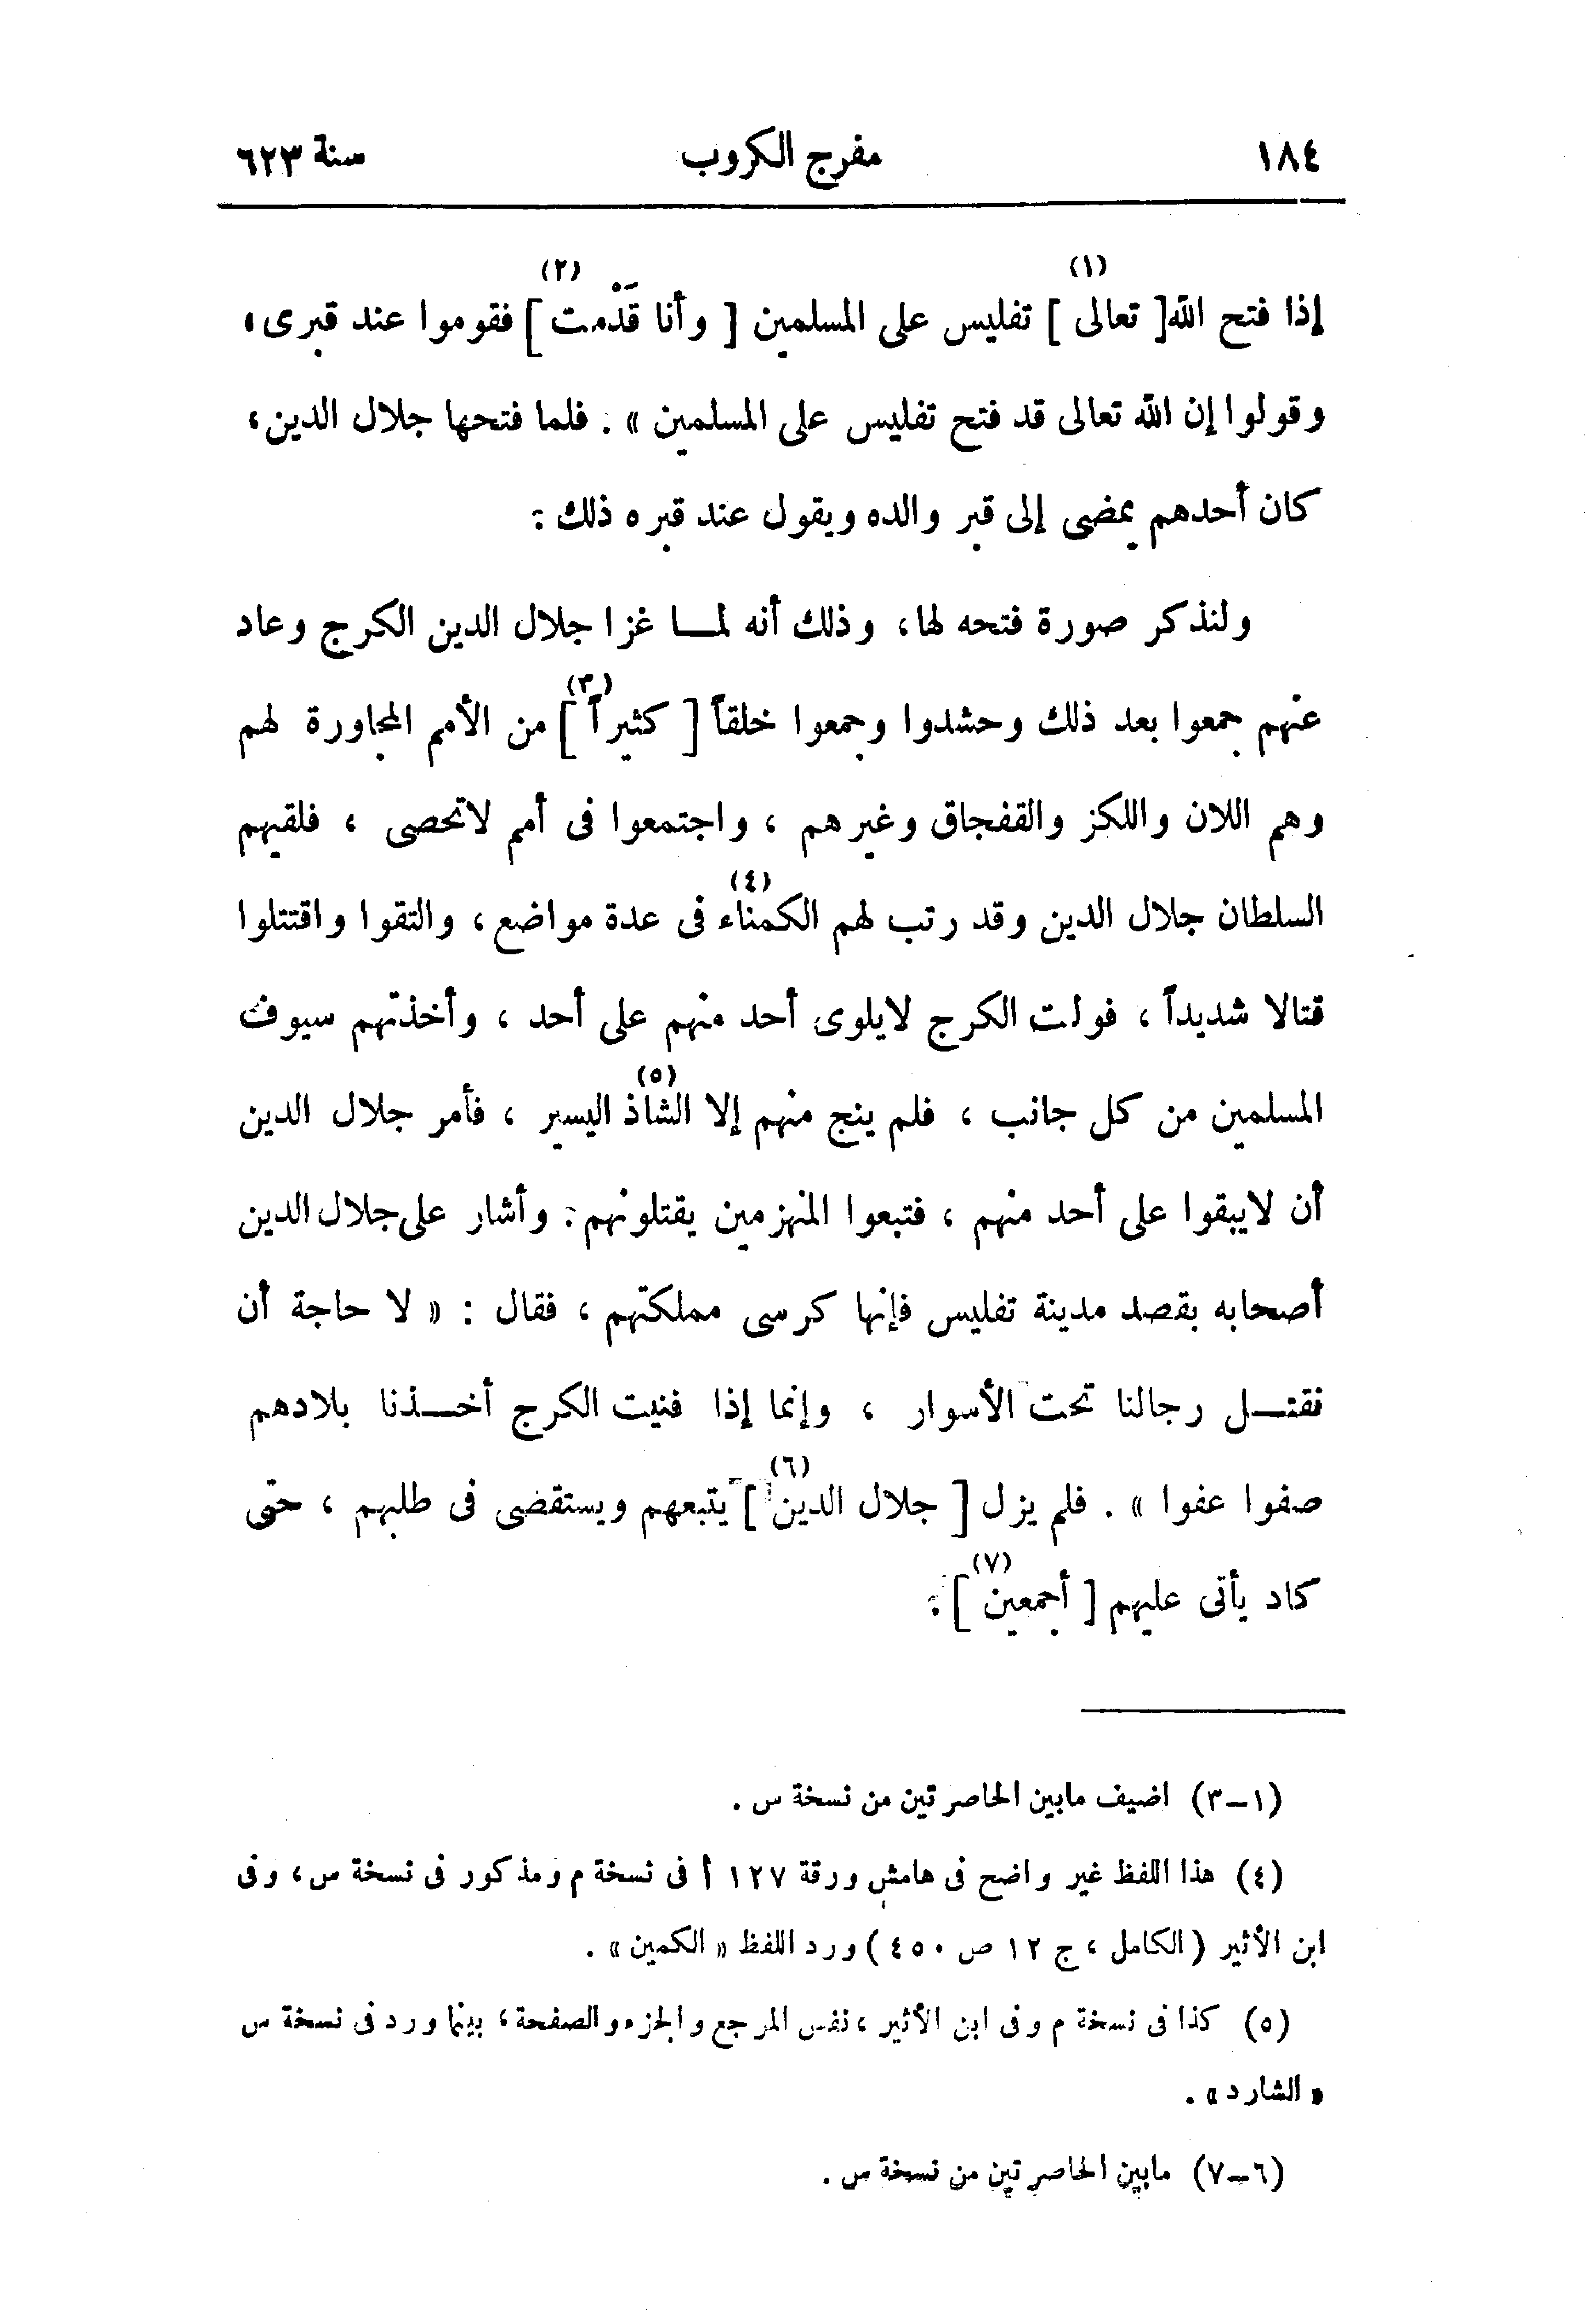 ١٨٤ مفرج الكروب سنة ٦٢٣
إذا فتح الله [ تعالى (١) ] تفليس على المسلمين [ وأنا قَدْمت (٢) ] فقوموا عند قبرى ،
وقولوا إن الله تعالى قد فتح تفليس على المسلمين » . فلما فتحها جلال الدين ،
كان أحدهم يمضى إلى قبر والده ويقول عند قبره ذلك :
ولنذكر صورة فتحه لها ، وذلك أنه لمــا غزا جلال الدين الكرج وعاد
عنهم جمعوا بعد ذلك وحشدوا وجمعوا خلقاً [ كثيراً (٣) ] من الأمم المجاورة لهم
وهم اللان واللكز والقفجاق وغيرهم ، واجتمعوا فى أمم لاتحصى ، فلقيهم
السلطان جلال الدين وقد رتب لهم الكمناء (٤) فى عدة مواضع ، والتقوا واقتتلوا
قتالا شديداً ، فولت الكرج لايلوى أحد منهم على أحد ، وأخذتهم سيوف
المسلمين من كل جانب ، فلم ينج منهم إلا الشاذ (٥) اليسير ، فأمر جلال الدين
أن لايبقوا على أحد منهم ، فتبعوا المنهزمين يقتلونهم : وأشار على جلال الدين
أصحابه بقصد مدينة تفليس فإنها كرسى مملكتهم ، فقال : « لا حاجة أن
نقتــل رجالنا تحت الأسوار ، وإنما إذا فنيت الكرج أخــذنا بلادهم
صفوا عفوا » . فلم يزل [ جلال الدين (٦) ] يتبعهم ويستقضى فى طلبهم ، حتى
كاد يأتى عليهم [ أجمعين (٧) ] :
(١-٣) اضيف مابين الحاصرتين من نسخة س .
(٤) هذا اللفظ غير واضح فى هامش ورقة ١٢٧ أ فى نسخة م ومذكور فى نسخة س ، وفى
ابن الأثير ( الكامل ، ج ١٢ ص ٤٥٠ ) ورد اللفظ « الكمين » .
(٥) كذا فى نسخة م وفى ابن الأثير ، نفس المرجع والجزء والصفحة ، بينما ورد فى نسخة س
« الشارد » .
(٦-٧) مابين الحاصرتين من نسخة س .